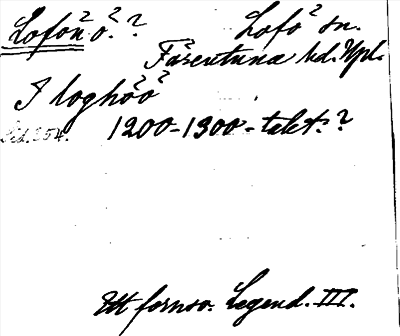 Lofön²o.² ? Lofö² sn.
Färentuna hd. Upl.
I loghö²ö²
Sid. 354. 1200-1300-talet.?
Ett fornsv. Legend. III.